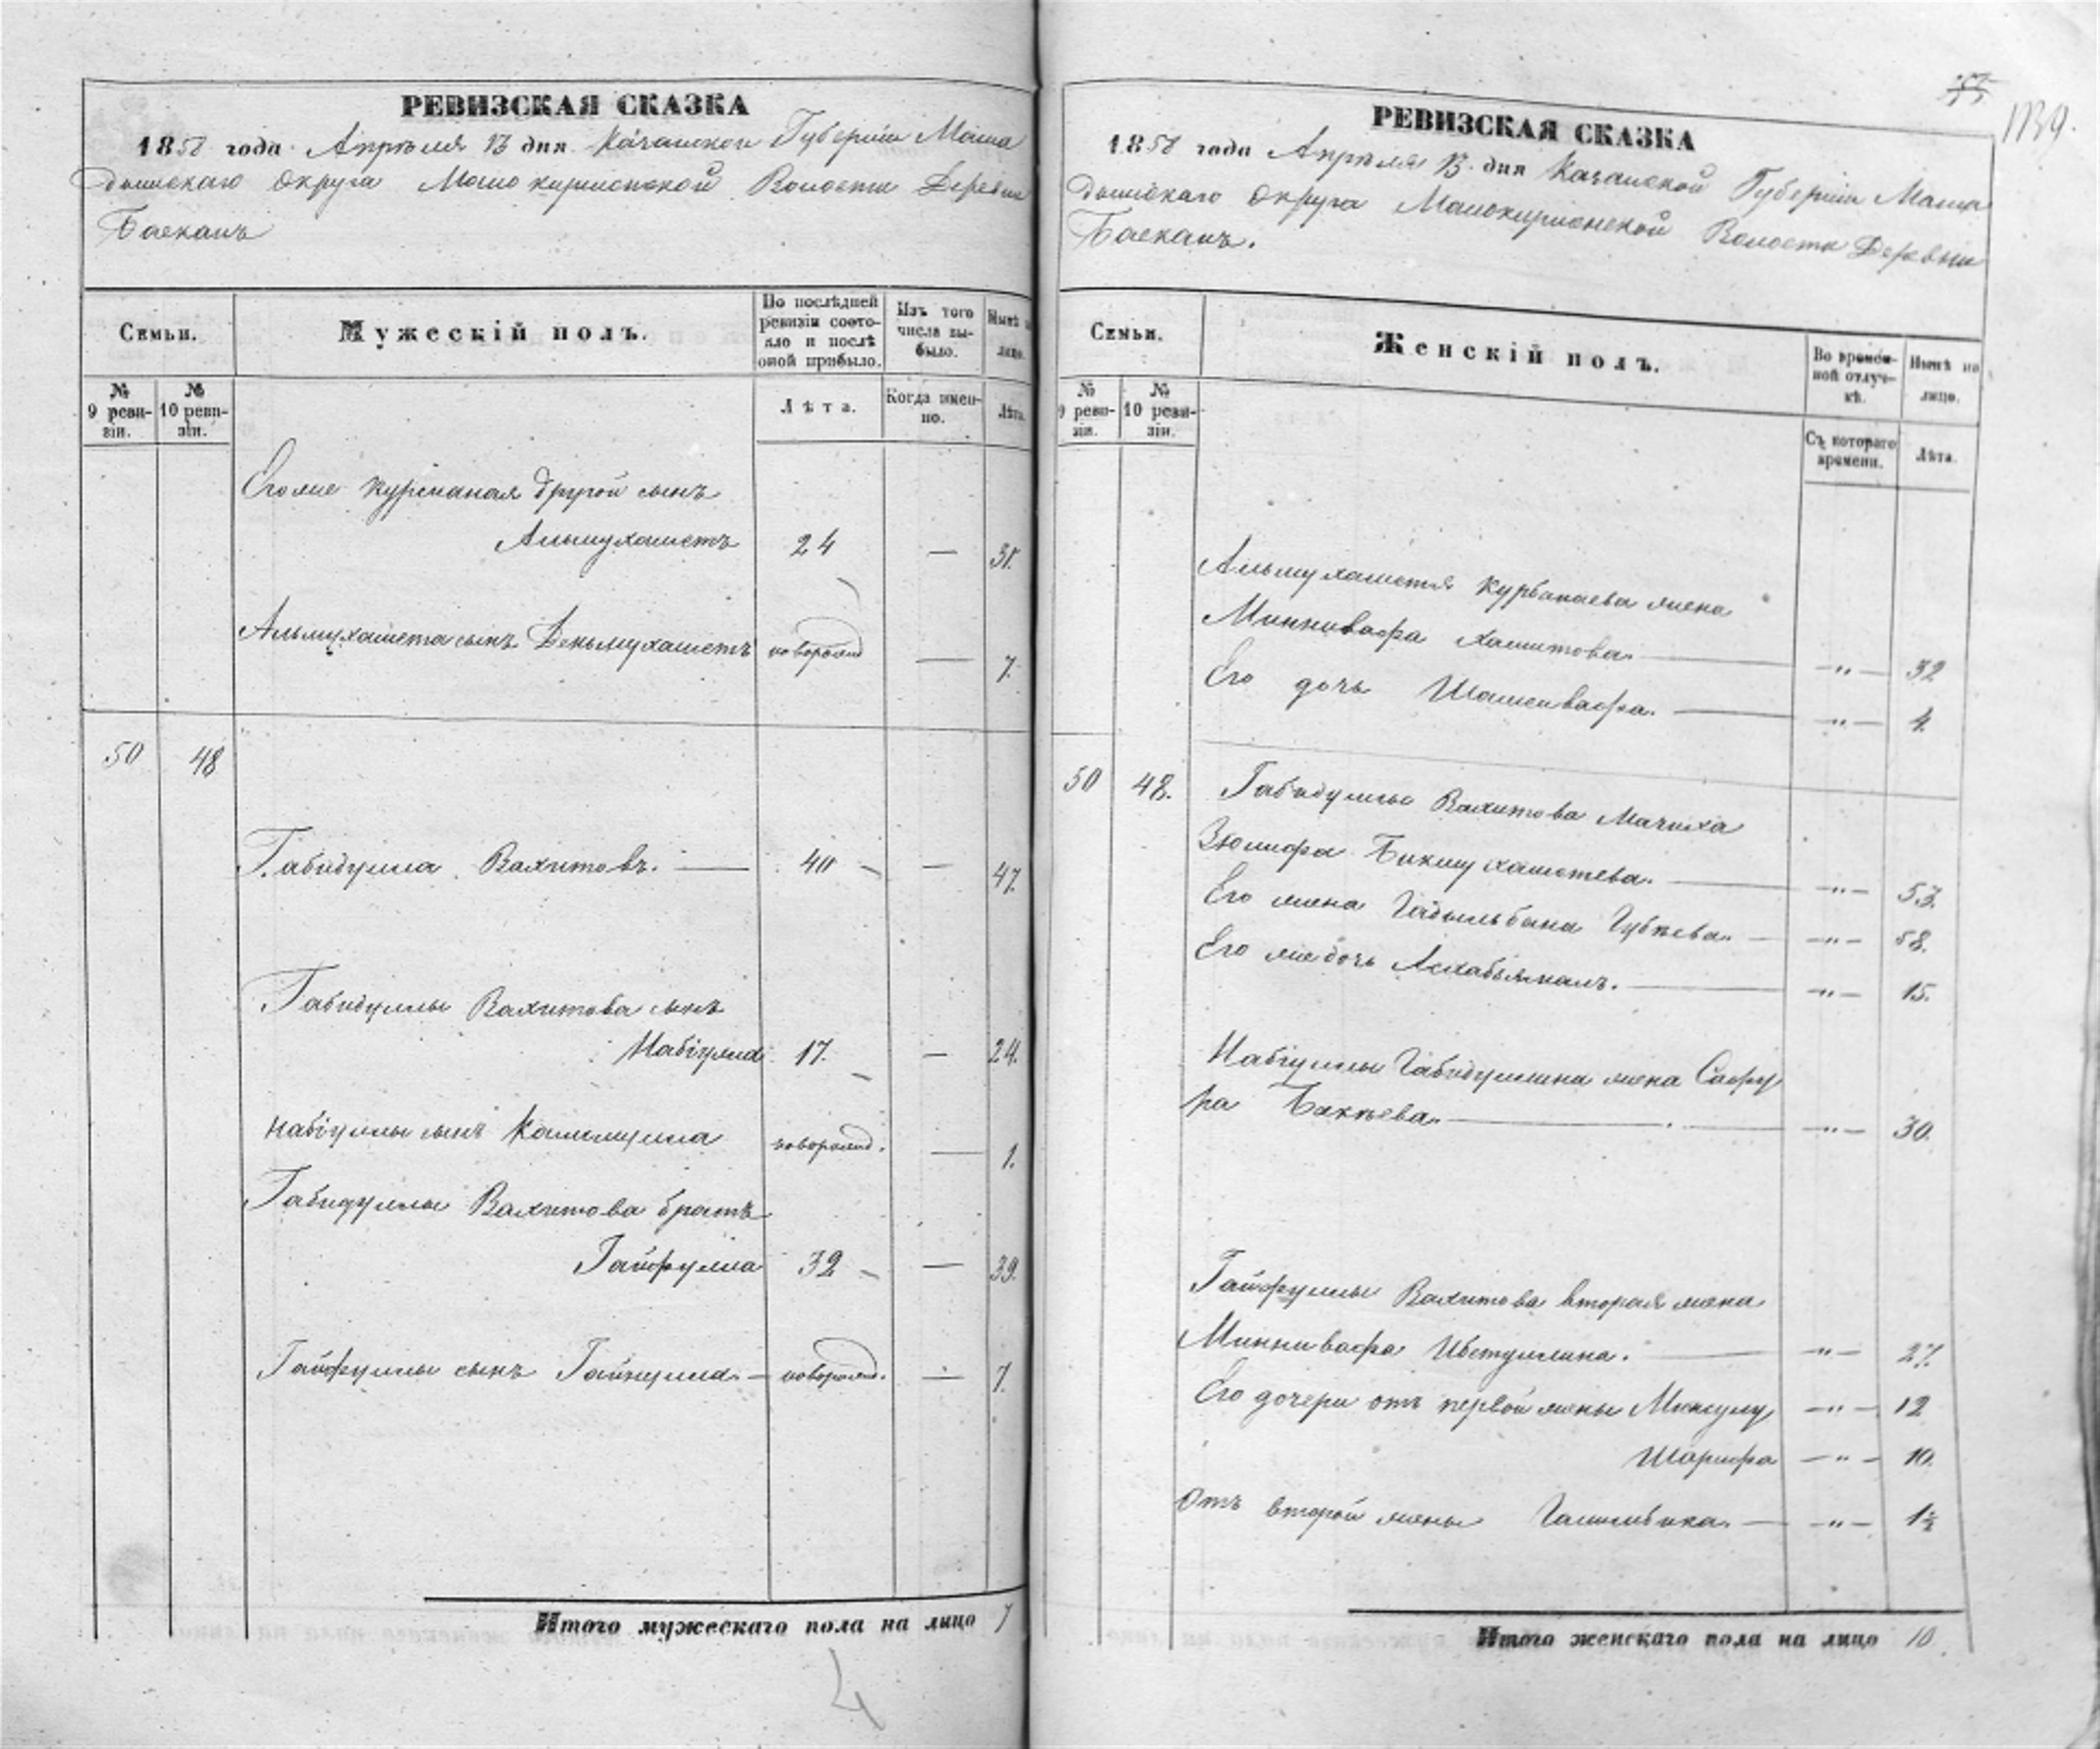 РЕВИЗСКАЯ СКАЗКА
1858 года Апреля 13 дня Казанской Губернiи Мама
дышскаго Округа Малокирменской Волости Деревни
Баскань
Семьи.
Мужескiй полъ.
По послѣдней ревизiи состояло и послѣ оной прибыло.
Изъ того числа выбыло.
Нынѣ на лицо.
№ 9 ревизiи.
№ 10 ревизiи.
Лѣта.
Когда именно.
Лѣта.
Его же Курбаная другой сынъ
Альмухаметъ 24 — 31.
Альмухамета сынъ Деньмухаметъ новорожд — 7.
50 48
Габидулла Вахитовъ. — 40 — — 47.
Габидуллы Вахитова сынъ
Набiулла 17. — — 24.
Набiуллы сынъ Калимулла новорожд. — 1.
Габидуллы Вахитова братъ
Гайфулла 32 — — 39.
Гайфуллы сынъ Гайнулла. — новорожд. — 7.
Итого мужескаго пола на лицо 7
4
1139.
РЕВИЗСКАЯ СКАЗКА
1858 года Апреля 13 дня Казанской Губернiи Мама
дышскаго Округа Малокирменской Волости Деревни
Баскань.
Семьи.
Женскiй полъ.
Во временной отлучкѣ.
Нынѣ на лицо.
№ 9 ревизiи.
№ 10 ревизiи.
Съ котораго времени.
Лѣта.
Альмухаметя Курбанаева жена
Миннивафа Хамитова. — „ — 32
Его дочь Шамсивафа. — „ — 4.
50 48. Габидуллы Вахитова Мачиха
Зюлифа Бикмухаметева. — „ — 53.
Его жена Гадыльбана Губеева. — „ — 58.
Его же дочь Асхабъямалъ. — „ — 15.
Набiуллы Габидуллина жена Сафу
ра Бакѣева. — „ — 30.
Гайфуллы Вахитова вторая жена
Миннивафа Ибетуллина. — „ — 27.
Его дочери отъ первой жены Мингулу — „ — 12
Шарифа — „ — 10.
Отъ второй жены Галимбика. — „ — 1½
Итого женскаго пола на лицо 10.